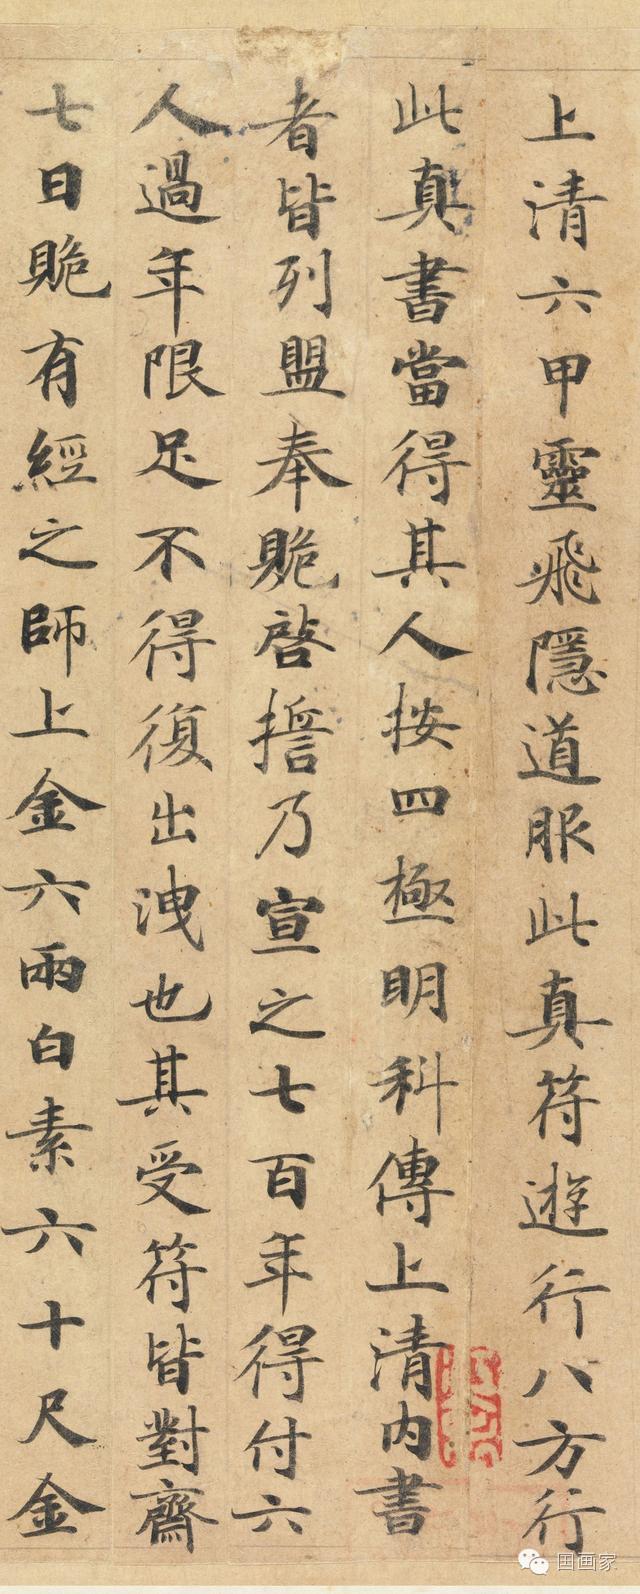 上清六甲靈飛隱道服此真符遊行八方行
此真書當得其人按四極明科傳上清內書
者皆列盟奉貹啓誓乃宣之七百年得付六
人過年限足不得復出洩也其受符皆對齋
七日貹有經之師上金六兩白素六十尺金
国画家